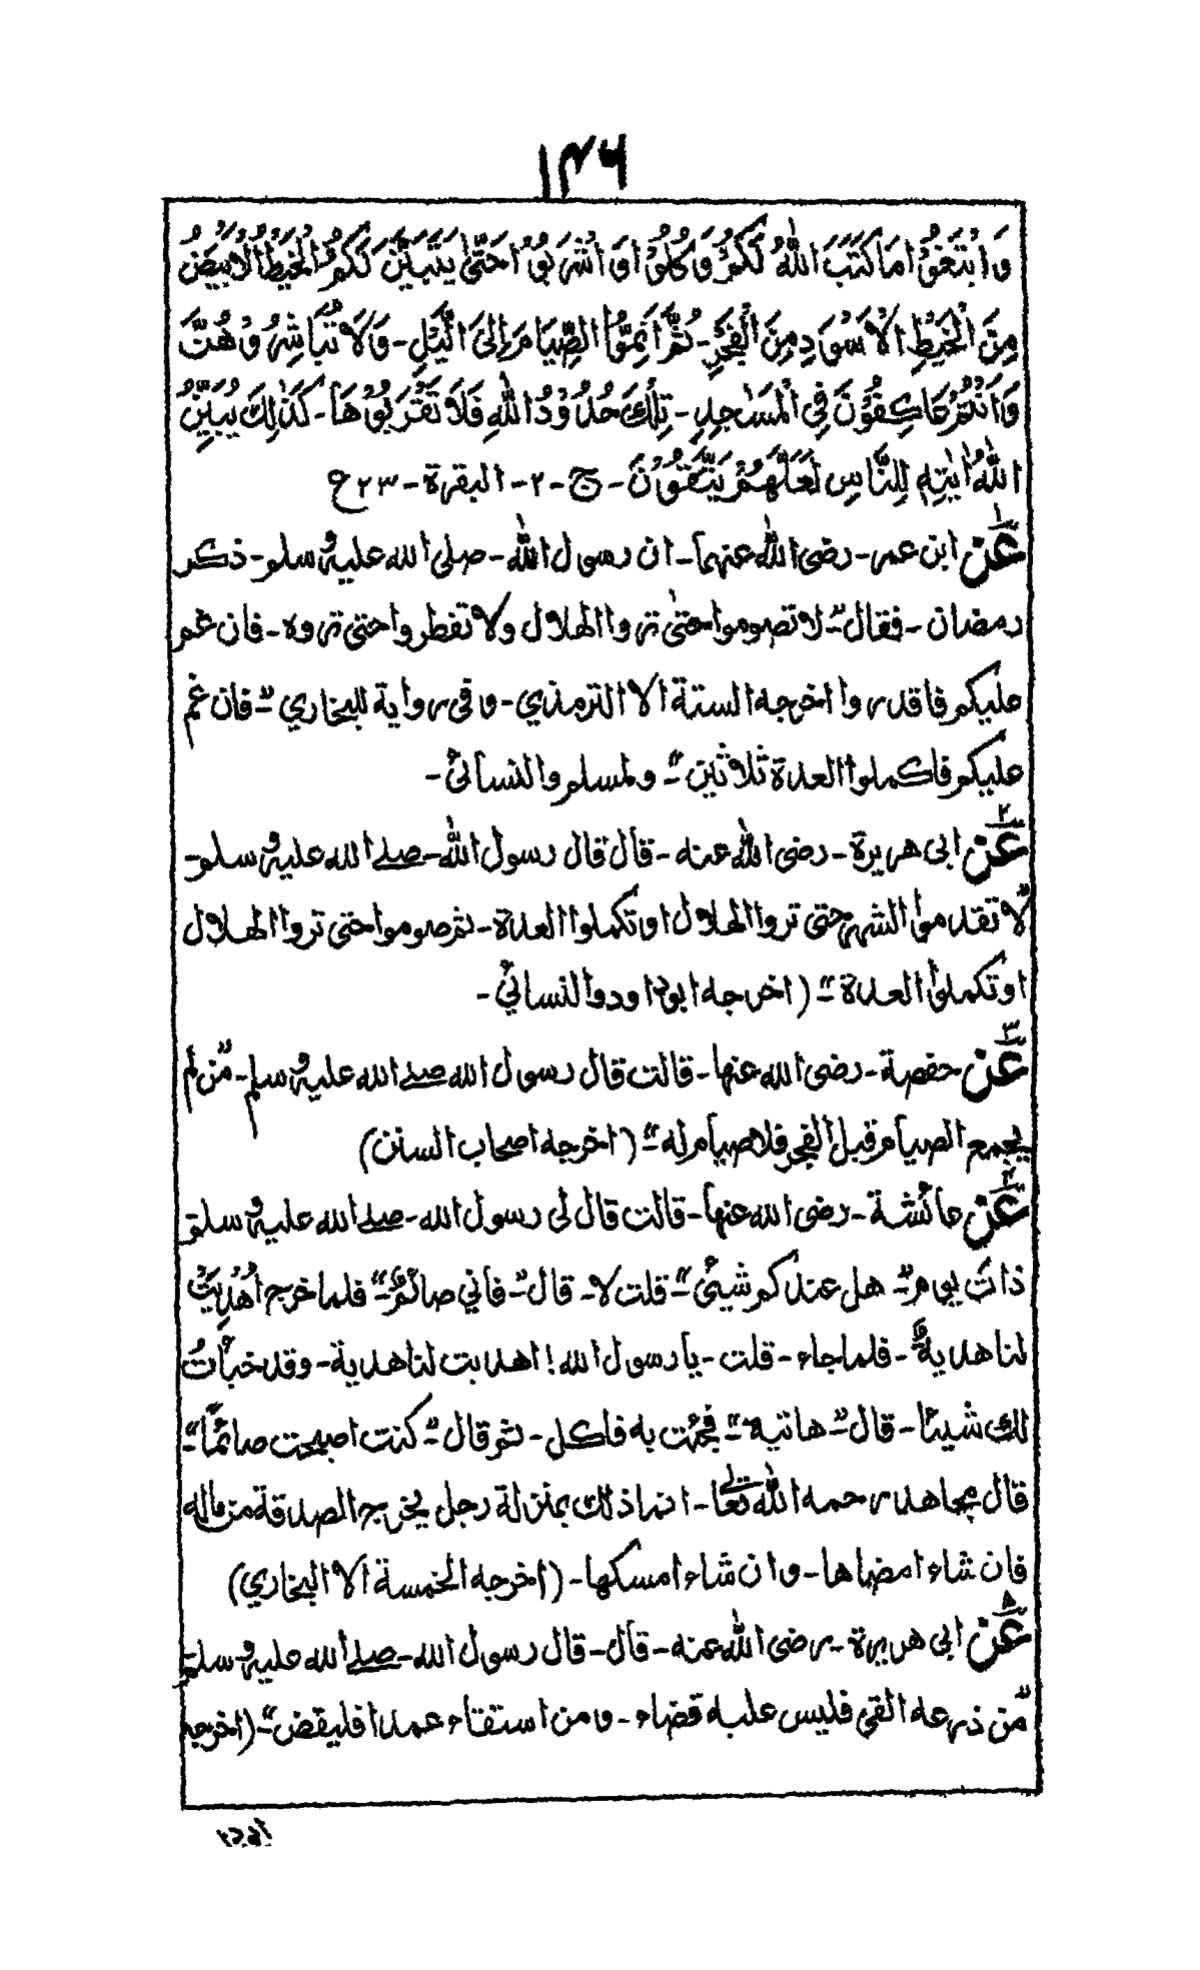 ۱۴۶
وَابْتَغُوْا مَا كَتَبَ اللّٰهُ لَكُمْ وَكُلُوْا وَاشْرَبُوْا حَتّٰى يَتَبَيَّنَ لَكُمُ الْخَيْطُ الْاَبْيَضُ
مِنَ الْخَيْطِ الْاَسْوَدِ مِنَ الْفَجْرِ - ثُمَّ اَتِمُّوا الصِّيَامَ اِلَى الَّيْلِ - وَلَا تُبَاشِرُوْهُنَّ
وَاَنْتُمْ عَاكِفُوْنَ فِي الْمَسٰجِدِ - تِلْكَ حُدُوْدُ اللّٰهِ فَلَا تَقْرَبُوْهَا - كَذٰلِكَ يُبَيِّنُ
اللّٰهُ اٰيٰتِهٖ لِلنَّاسِ لَعَلَّهُمْ يَتَّقُوْنَ - ج - ۲ - البقرة - ۲۳ع
۱ عَنْ ابن عمر - رضى اللّٰه عنهما - ان رسول اللّٰه - صلى الله عليه وسلم - ذكر
رمضان - فقال " لا تصوموا حتىٰ تروا الهلال ولا تفطروا حتى تروه - فان غم
عليكم فاقدروا اخرجه الستة الا الترمذي - وفى رواية للبخاري " فان غم
عليكم فاكملوا العدة ثلاثين " ولمسلم والنسائى -
۲ عَنْ ابى هريرة - رضى اللّٰه عنه - قال قال رسول اللّٰه - صلے الله عليه وسلم -
" لا تقدموا الشهر حتى تروا الهلال او تكملوا العدة - ثم صوموا حتى تروا الهلال
او تكملوا العدة " (اخرجه ابوداود والنسائي -
۳ عَنْ حفصة - رضى الله عنها - قالت قال رسول الله صلے الله عليه وسلم - " من لم
يجمع الصيام قبل الفجر فلا صيام له " (اخرجه اصحاب السنن)
۴ عَنْ عائشة - رضى الله عنها - قالت قال لى رسول الله - صلے الله عليه وسلم
ذات يوم " هل عندكم شيئى " قلت لا - قال " فاني صائمٌ " فلما خرج اُهْدِيَتْ
لنا هديةٌ - فلما جاء - قلت - يا رسول الله! اهديت لنا هدية - وقد خبأتُ
لك شيئا - قال " هاتيه " فجئت به فاكل - ثم قال " كنت اصبحت صائمًا "
قال مجاهد رحمه اللّٰه تعالى - انما ذلك بمنزلة رجل يخرج الصدقة من ماله
فان شاء امضاها - وان شاء امسكها - (اخرجه الخمسة الا البخاري)
۵ عَنْ ابى هريرة - رضى اللّٰه عنه - قال - قال رسول الله - صلے الله عليه وسلم
" من ذرعه القئ فليس عليه قضاء - ومن استقاء عمدا فليقض " (اخرجه